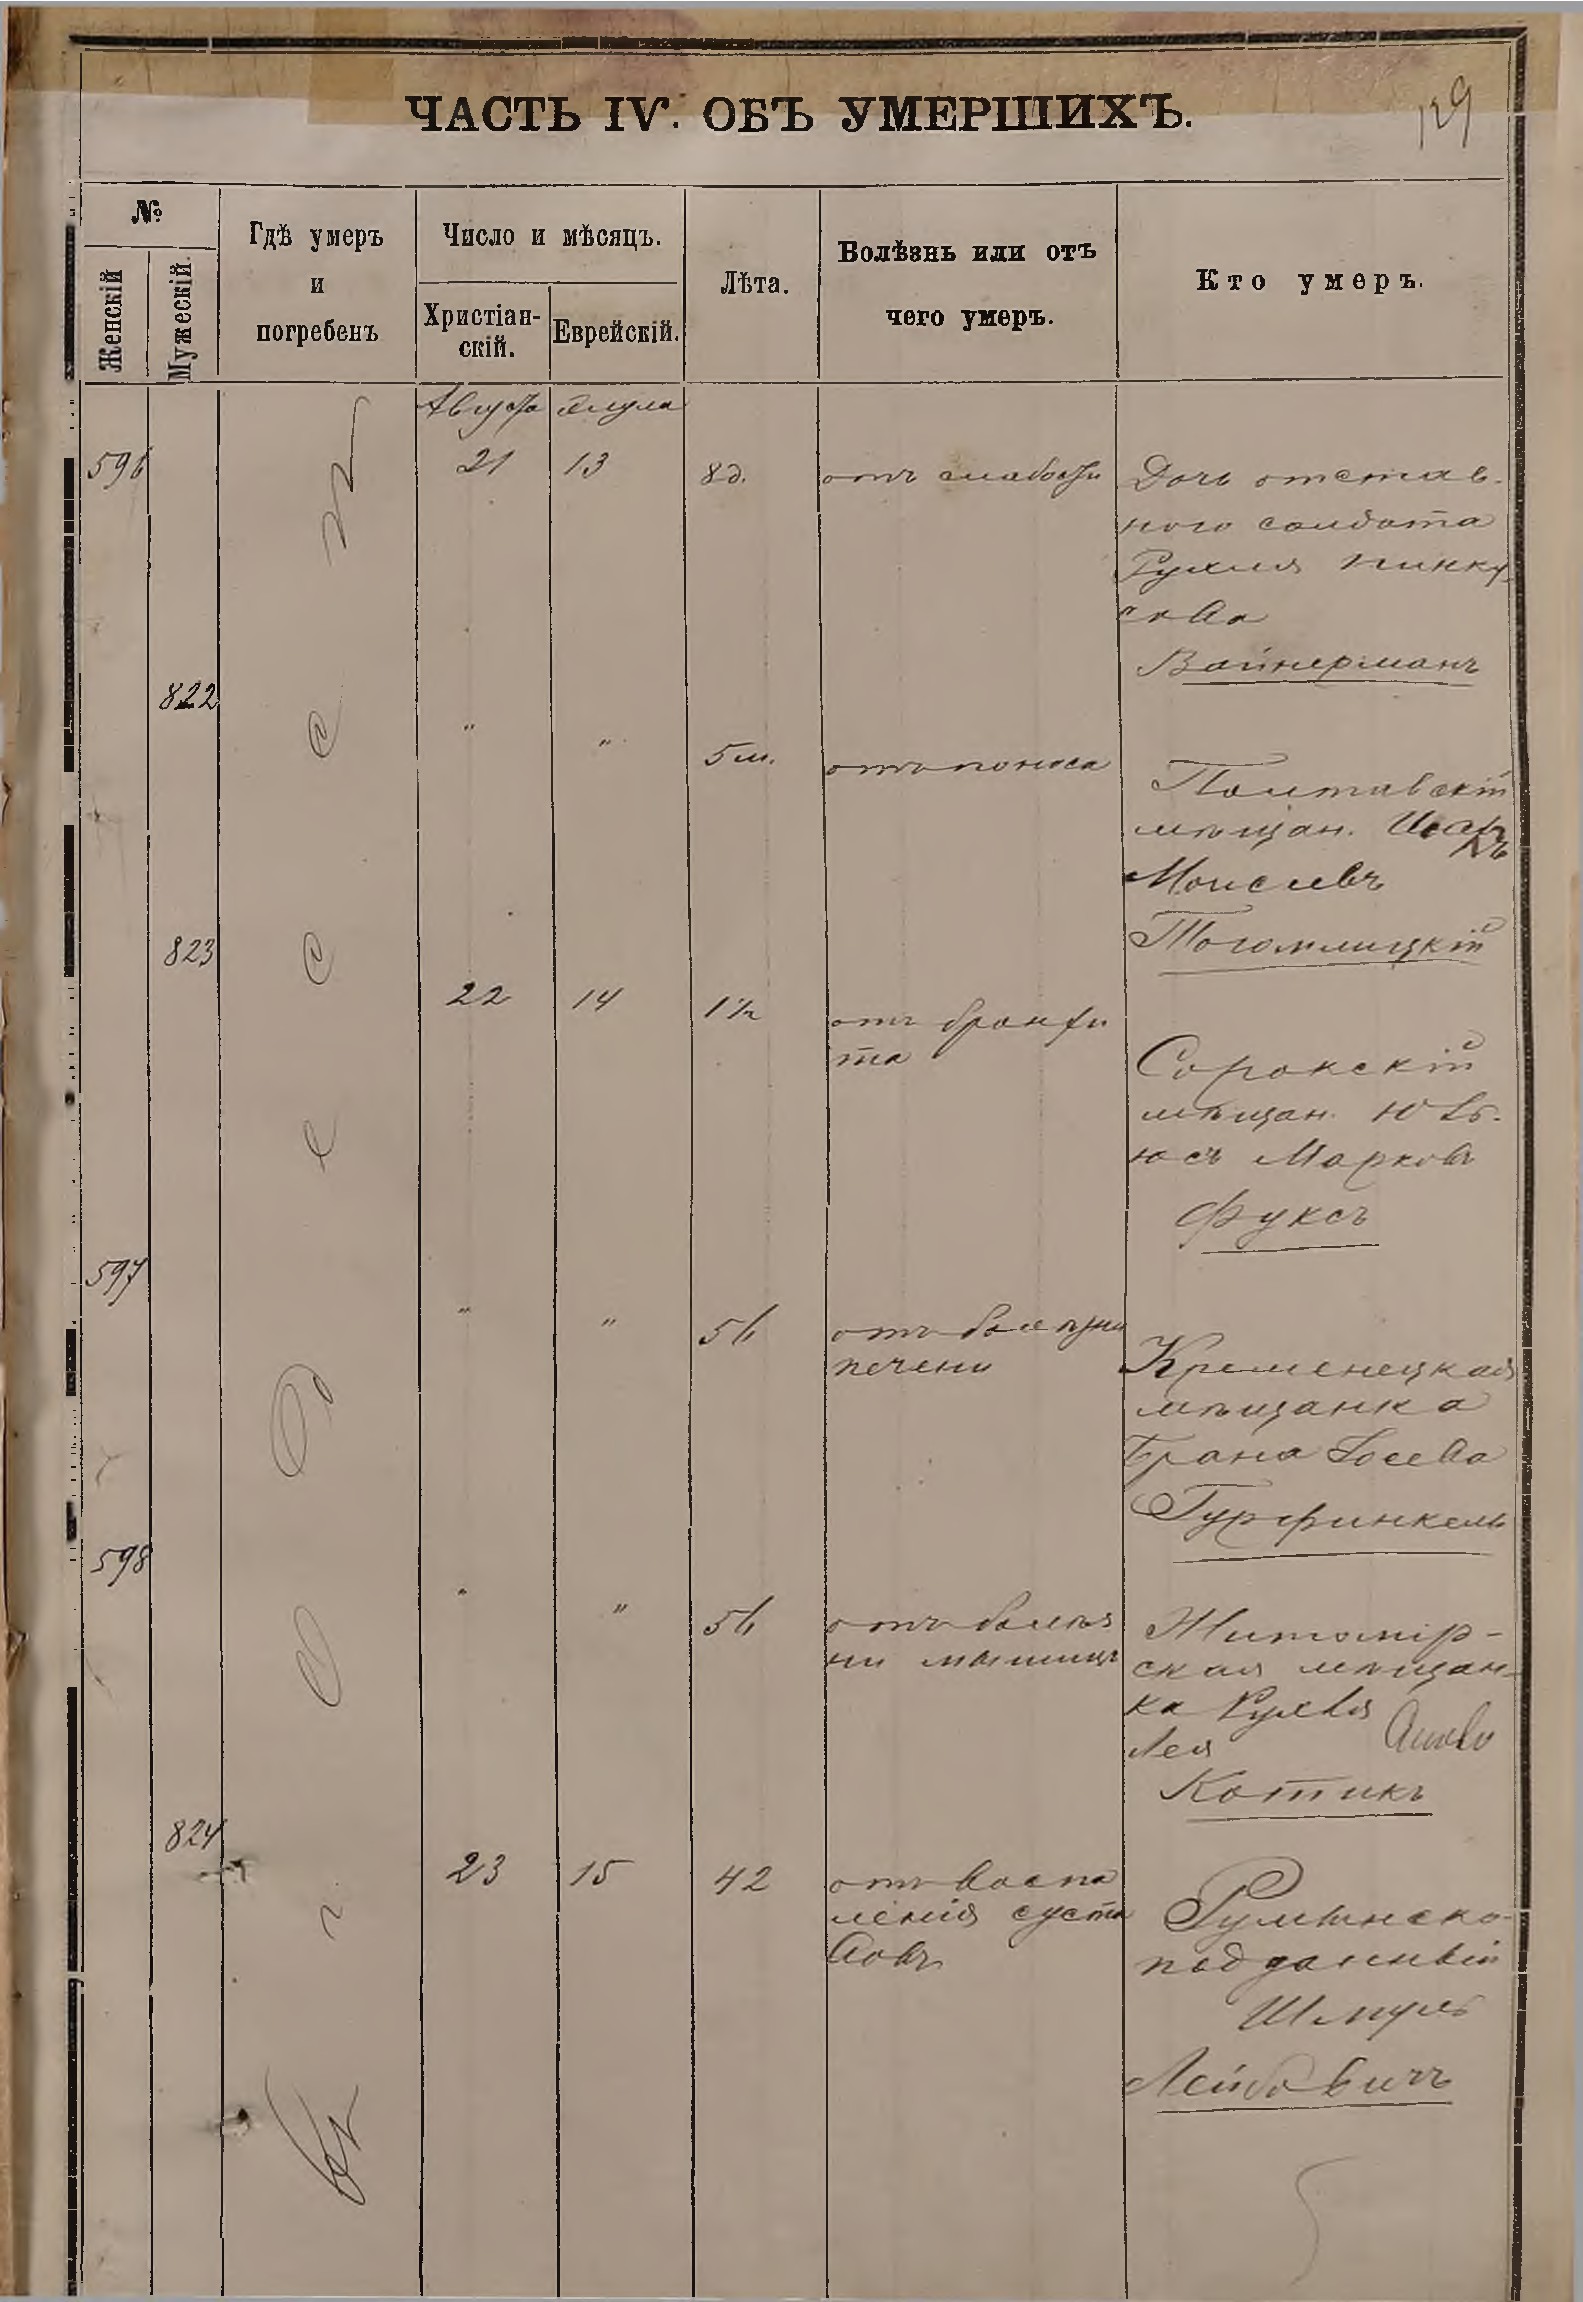 ЧАСТЬ IV. ОБЪ УМЕРШИХЪ.
129
№
Женскій
Мужескій
Гдѣ умеръ
и
погребенъ
Число и мѣсяцъ.
Христіан-
скій.
Еврейскій.
Лѣта.
Болѣзнь или отъ
чего умеръ.
Кто умеръ.
Августа Элула
596 21 13 8 д. отъ слабости Дочь отстав-
ного солдата
Рухля Пинку-
сова
Вайнерманъ
822 " " 5 м. отъ поноса Полтавскій
мѣщан. Исаакъ
Моисеевъ
823 22 14 1½ отъ бронхи
та Сорокскій
мѣщан.
Марковъ
Фуксъ
597 " " 56 отъ болѣзни
печени Кременецкая
мѣщанка
Брана Іосева
Гурфинкель
598 " " 56 отъ болѣз
ни Житомір-
ская мѣщан-
ка Рухля
Лея
Котикъ
824 23 15 42 отъ воспа
ленія суста
вовъ Румынско-
подданный
Шмуль
Лейбовичъ